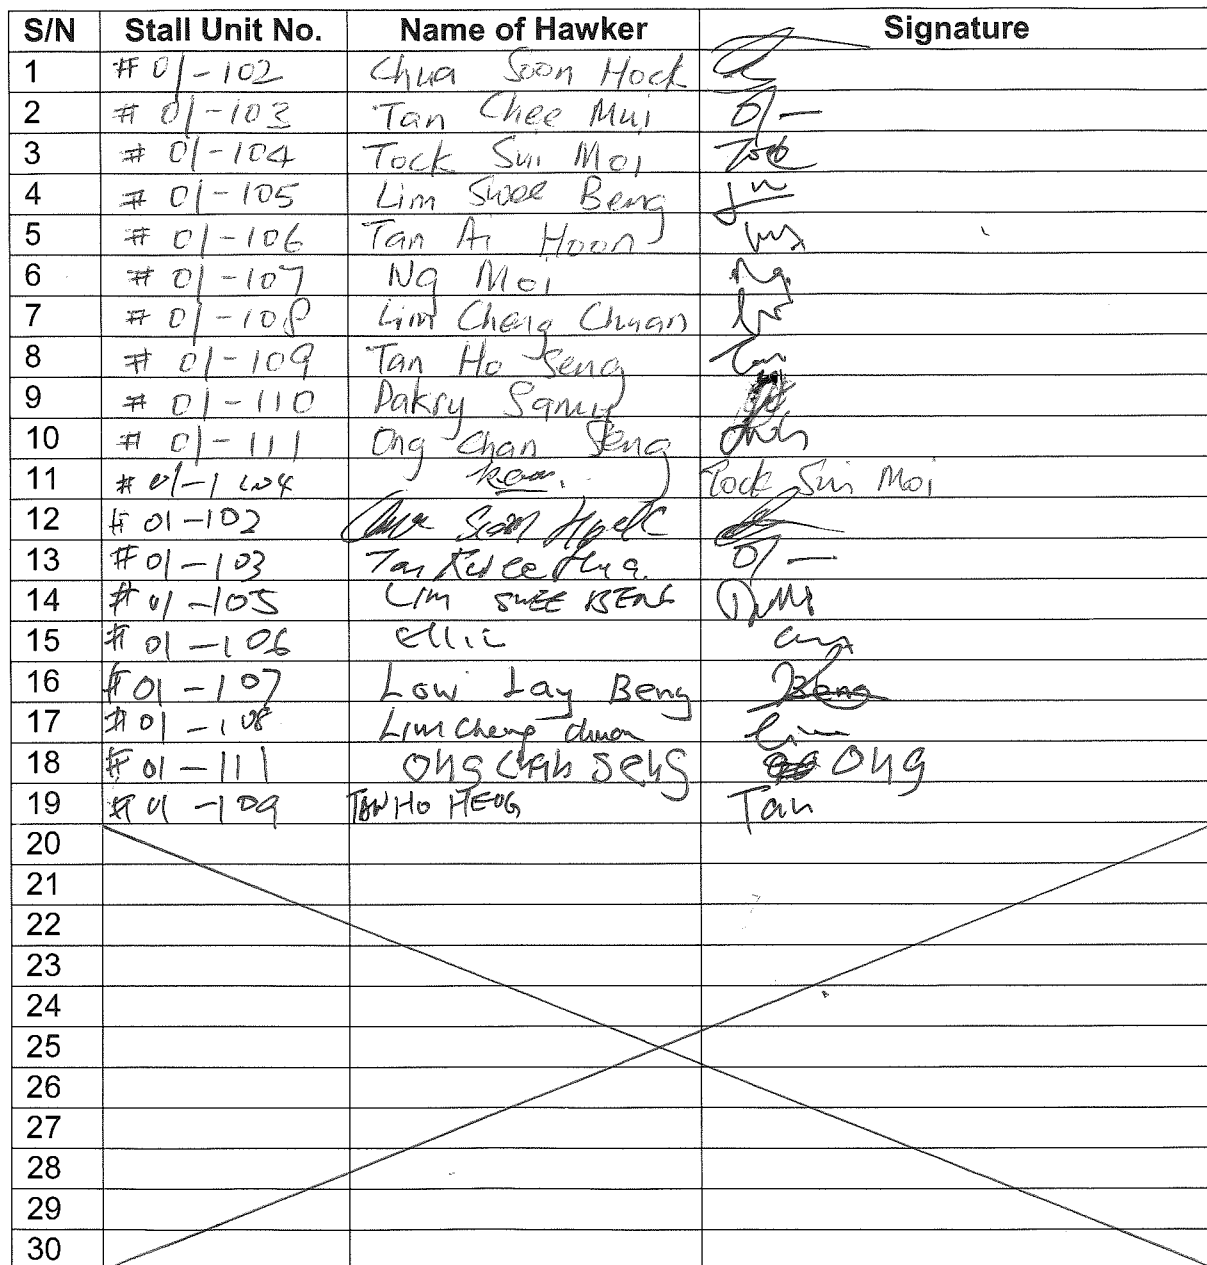 S/N Stall Unit No. Name of Hawker Signature
1 #01-102 Chua Soon Hock
2 #01-103 Tan Chee Mui
3 #01-104 Tock Sui Moi Tock
4 #01-105 Lim Swee Beng
5 #01-106 Tan Ai Hoon
6 #01-107 Ng Moi Ng
7 #01-108 Lim Cheng Chuan
8 #01-109 Tan Ho Seng
9 #01-110 Samy
10 #01-111 Ong Chan Seng
11 Tock Sui Moi
12 #01-102
13 #01-103 Tan Hua
14 #01-105 LIM SWEE BENG
15 #01-106
16 #01-107 Low Lay Beng Beng
17 #01-108 Lim Cheng chuan Lim
18 #01-111 Ong Chan Seng Ong
19 #01-109 TAN HO HENG Tan
20
21
22
23
24
25
26
27
28
29
30